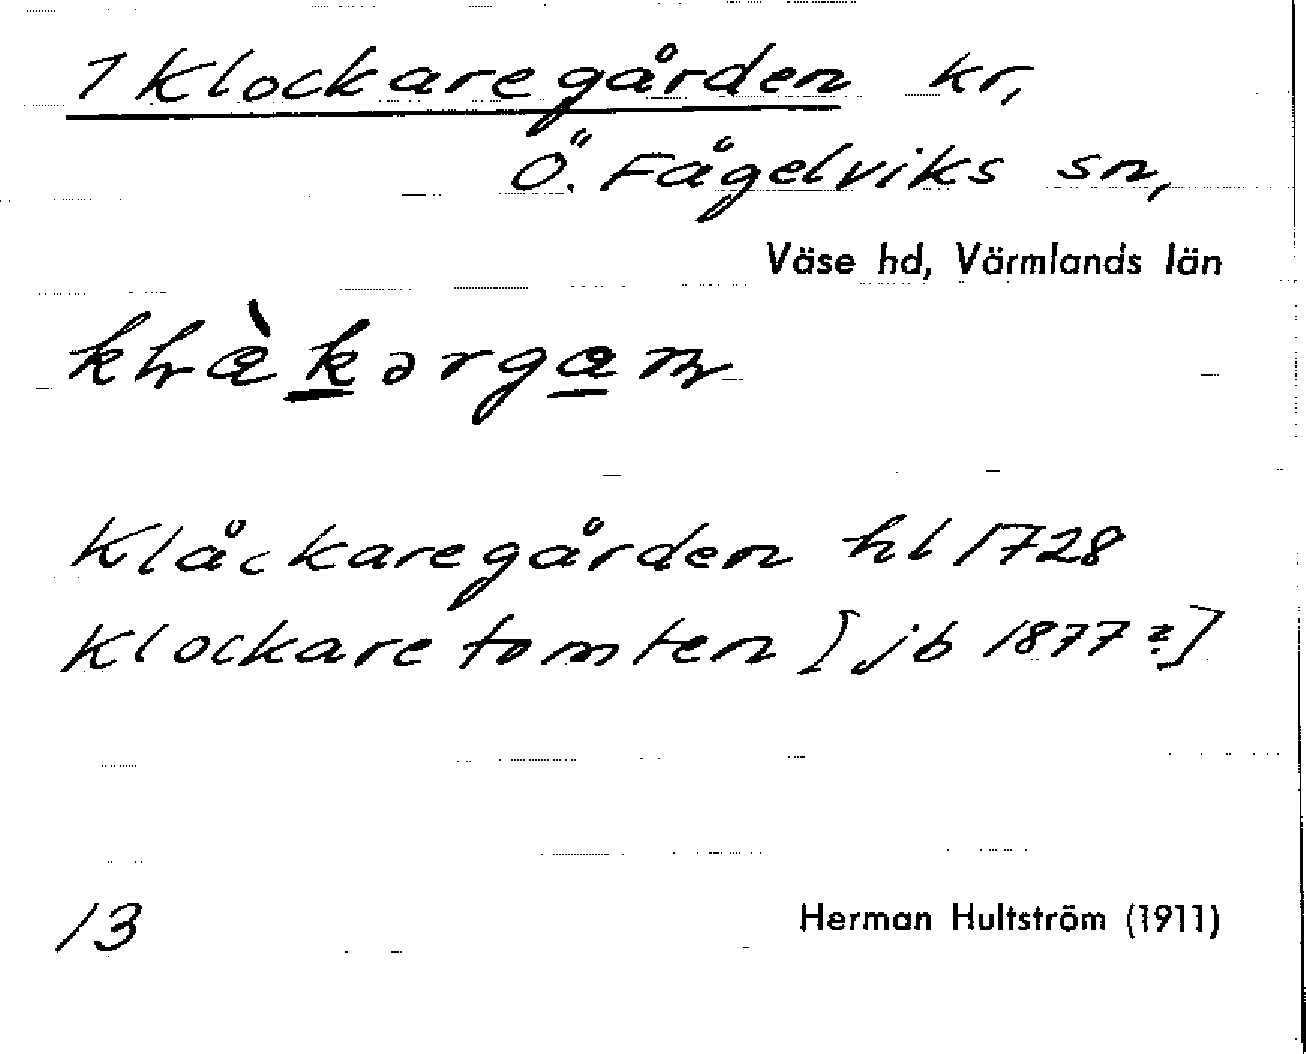 1 Klockaregården kr,
Ö. Fågelviks sn,
Väse hd, Värmlands län
Klåckaregården hl 1728
Klockaretomten [jb 1877 ?]
13 Herman Hultström (1911)